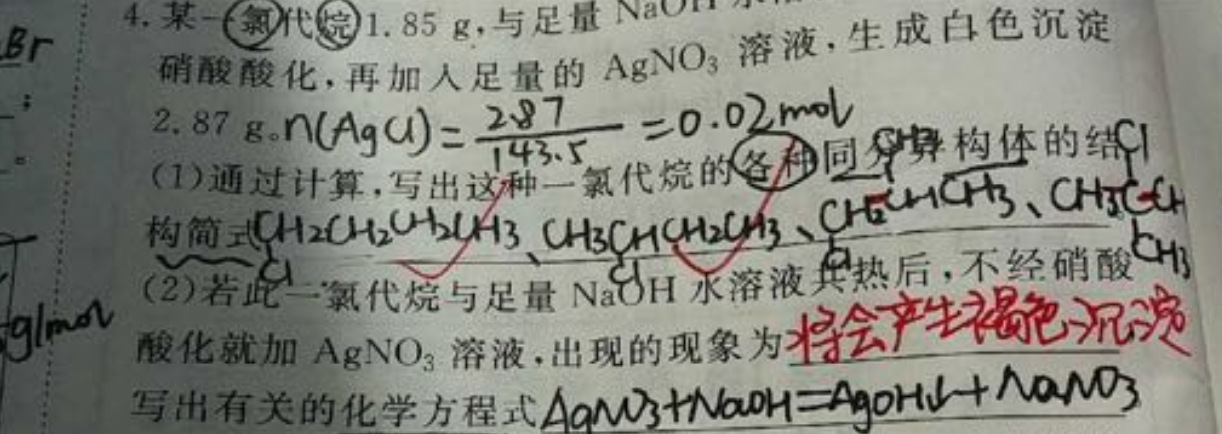 Br
4. 某一氯代烷 1.85 g,与足量 NaOH 水
硝酸酸化,再加入足量的 AgNO₃ 溶液,生成白色沉淀
2.87 g。n(AgCl)=2.87/143.5=0.02mol
(1)通过计算,写出这种一氯代烷的各种同分异构体的结
CH3 Cl
构简式CH2CH2CH2CH3、CH3CHCH2CH3、CH2CHCH3、CH3C-CH
Cl Cl Cl CH3
(2)若此一氯代烷与足量 NaOH 水溶液共热后,不经硝酸
g/mol
酸化就加 AgNO₃ 溶液,出现的现象为将会产生褐色沉淀
写出有关的化学方程式AgNO3+NaOH=AgOH↓+NaNO3